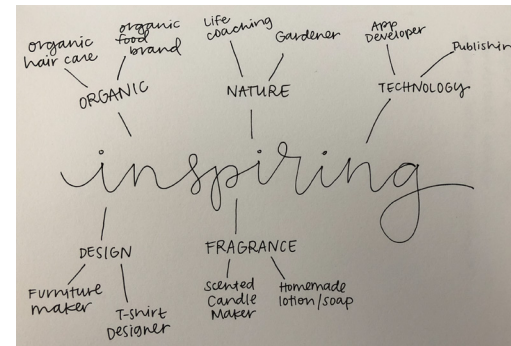 organic
hair care
organic
food
brand
ORGANIC
Life
coaching
Gardener
NATURE
App
Developer
Publishin
TECHNOLOGY
inspiring
DESIGN
Furniture
maker
T-shirt
Designer
FRAGRANCE
Scented
Candle
Maker
Homemade
lotion/soap